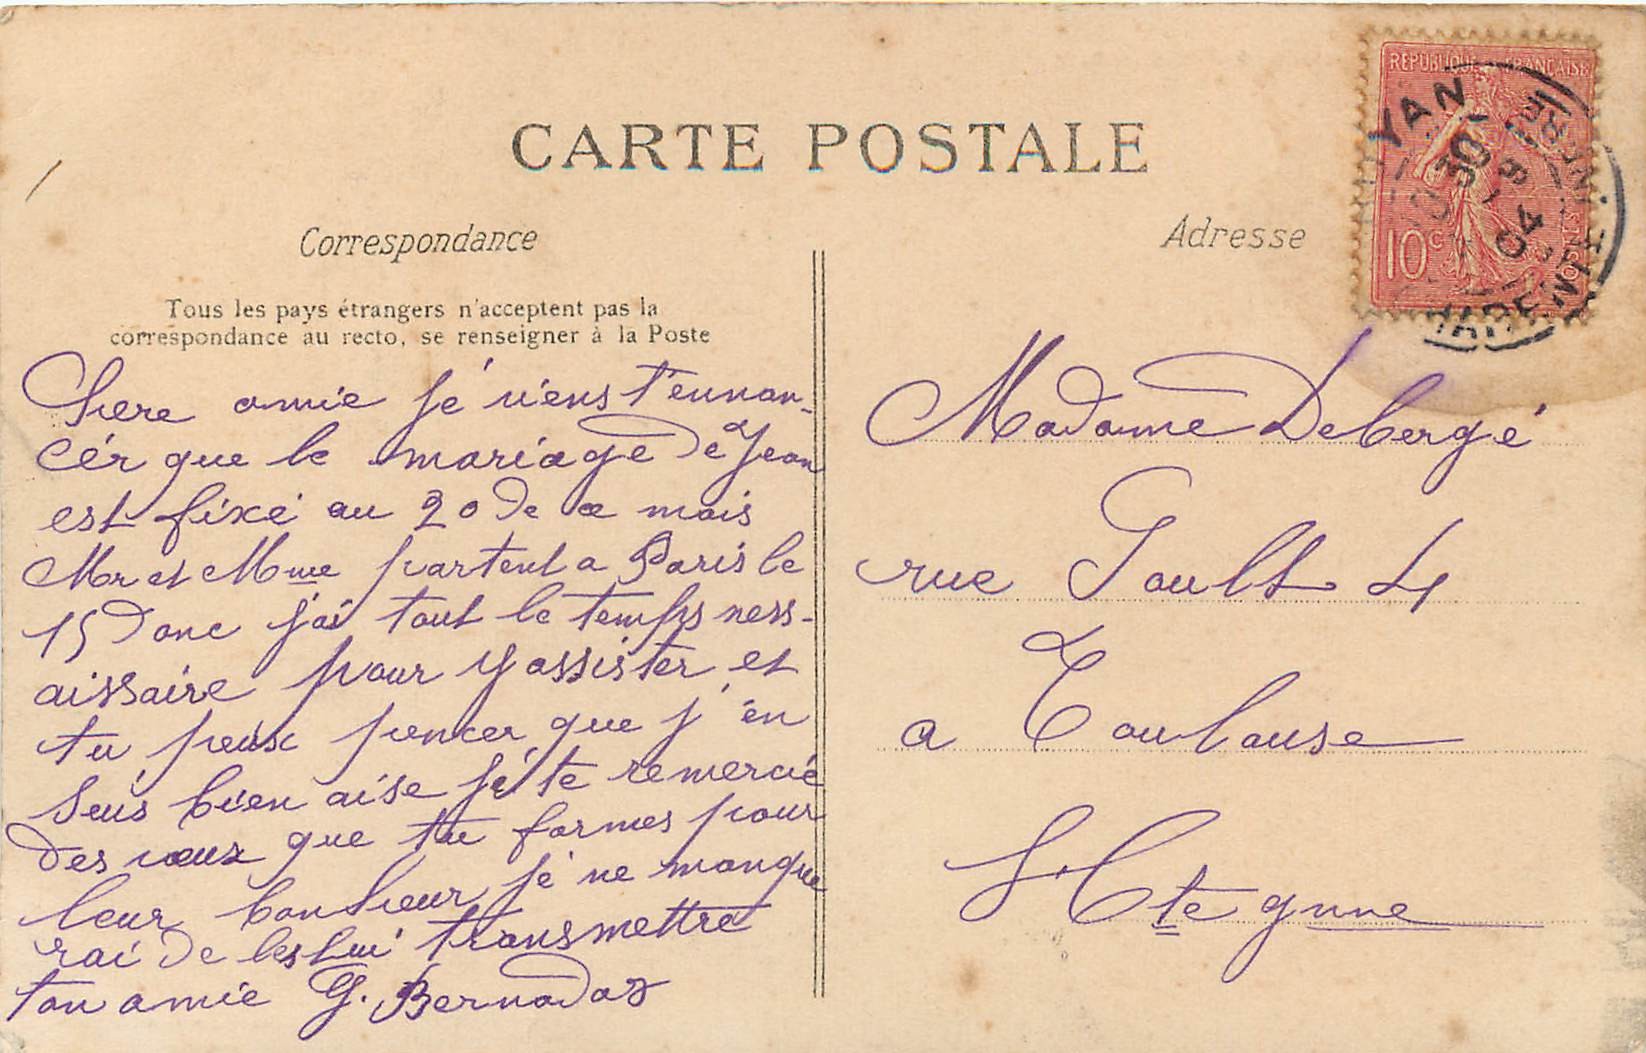 CARTE POSTALE
Correspondance
Tous les pays étrangers n'acceptent pas la
correspondance au recto, se renseigner à la Poste
Chere amie je viens t'ennon-
cér que le mariage de Jean
est fixé au 20 de ce mois
Mr et Mme partent a Paris le
15 Donc j'ai tout le temps ness-
aissaire pour y assister et
tu peux pencer que j'én
Suis bien aise je te remercie
des vœux que tu formes pour
leur bonheur je ne manque
rai de les lui transmettre
ton amie G. Bernadas
Adresse
REPUBLIQUE FRANÇAISE
10c
POSTES
ROYAN
8
04
CHARENTE INFRE
Madame Debergé
rue Goult 4
a Toulouse
Hte gnne